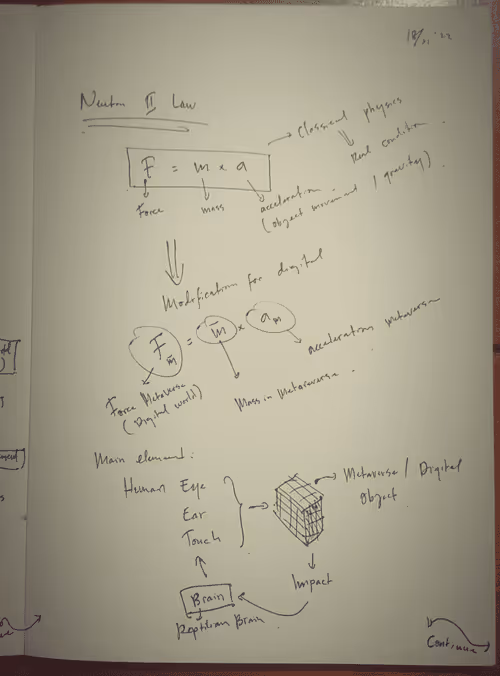 Newton II Law
F = m × a
Force
mass
acceleration
(object movement / gravity)
Classical physics
Real condition
Modification for digital
Fm = m × am
Force Metaverse
(Digital world)
Mass in Metaverse.
acceleration metaverse
Main element:
Human Eye
Ear
Touch
Metaverse / Digital
Object
Impact
Brain
Reptilian Brain
Continue